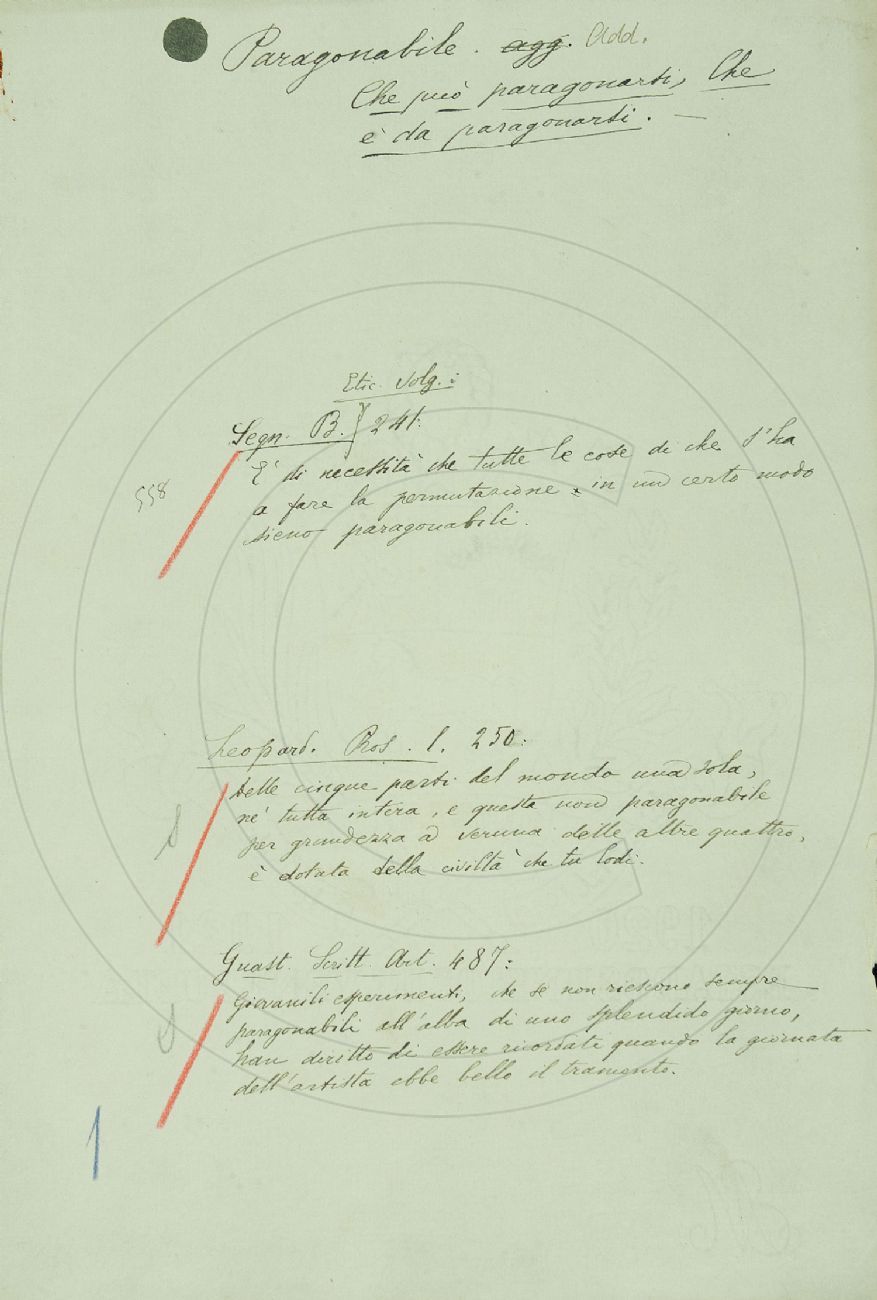 Paragonabile. agg. Add.
Che può paragonarsi, Che
è da paragonarsi. —
Etic. Volg.:
Segn. B. } 241:
E' di necessità che tutte le cose di che s'ha
558
a fare la permutazione, in un certo modo
sieno paragonabili.
Leopard. Pros. 1. 250:
Delle cinque parti del mondo una sola,
nè tutta intera, e questa non paragonabile
per grandezza a veruna delle altre quattro,
è dotata della civiltà che tu lodi.
Guast. Scritt. Art. 487:
Giovanili esperimenti, che se non riescono sempre
paragonabili all'alba di uno splendido giorno,
han diritto di essere ricordati quando la giornata
dell'artista ebbe bello il tramonto.